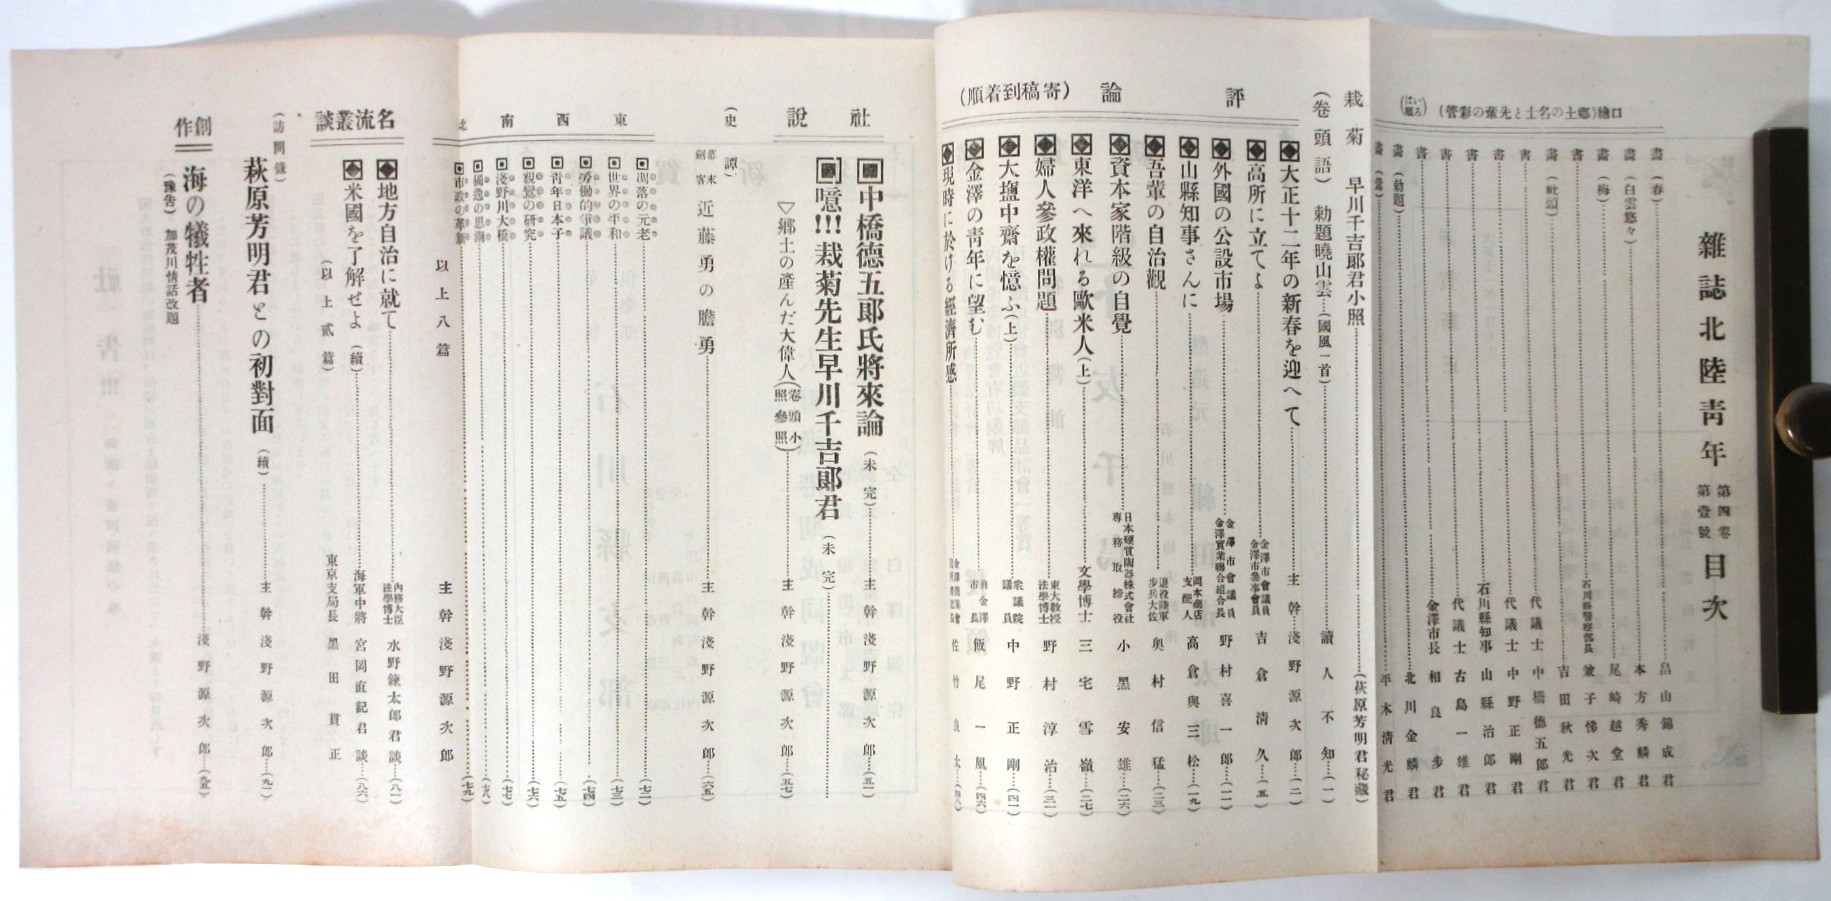 雜誌北陸靑年 第四卷 第壹號 目次
口繪(郷土の名士と先輩の彩管)(いろは順)
畵(春)…畠山錦成君
畵(白雲悠々)…本方秀麟君
畵(梅)…尾崎越堂君
書…石川縣警察部長 兼子悌次君
畵(牡頭)…吉田秋光君
書…代議士 中橋德五郎君
書…代議士 中野正剛君
書…石川縣知事 山縣治郎君
書…代議士 古島一雄君
書…金澤市長 相良步君
畵(勅題)…北川金鱗君
畵(鶯)…平木淸光君
栽菊 早川千吉郞君小照…(萩原芳明君秘藏)
(卷頭語) 勅題曉山雲…(國風一首)…讀人不知…(一)
評論(寄稿到着順)
大正十二年の新春を迎へて…主幹 淺野源次郎…(二)
高所に立てよ…金澤市會議員 金澤市參事會員 吉倉淸久…(五)
外國の公設市場…金澤市會議員 金澤實業聯合組合長 野村喜一郎…(一一)
山縣知事さんに…岡本商店支配人 高倉與三松…(一九)
吾輩の自治觀…退役陸軍步兵大佐 奥村信猛…(二三)
資本家階級の自覺…日本硬質陶器株式會社專務取締役 小黑安雄…(二六)
東洋へ來れる歐米人(上)…文學博士 三宅雪嶺…(二七)
婦人參政權問題…東大敎授 法學博士 野村淳治…(三一)
大鹽中齋を憶ふ(上)…衆議院議員 中野正剛…(四一)
金澤の靑年に望む…前金澤市長 飯尾一風…(四六)
現時に於ける經濟所感…佐竹良太…(四八)
社說
中橋德五郞氏將來論(未完)…主幹 淺野源次郎…(五一)
噫!!!栽菊先生早川千吉郞君(未完)
▽郷土の產んだ大偉人(卷頭小照參照)…主幹 淺野源次郎…(五七)
(史譚)
幕末劍客 近藤勇の膽勇…主幹 淺野源次郎…(六五)
東西南北
凋落の元老…(七二)
世界の平和…(七三)
勞働的爭議…(七四)
靑年日本子…(七五)
親鸞の研究…(七六)
淺野川大橋…(七七)
獨逸の思潮…(七八)
市政の革新…(七九)
以上八篇 主幹 淺野源次郎
名流叢談
地方自治に就て…內務大臣 法學博士 水野鍊太郎君談…(八一)
米國を了解せよ(續)…海軍中將 宮岡直記君談…(八六)
(以上貳篇) 東京支局長 黑田貫正
(訪問錄)
萩原芳明君との初對面(續)…主幹 淺野源次郎…(九一)
創作
海の犧牲者…淺野源次郎…(九五)
(豫吿) 加茂川情話改題